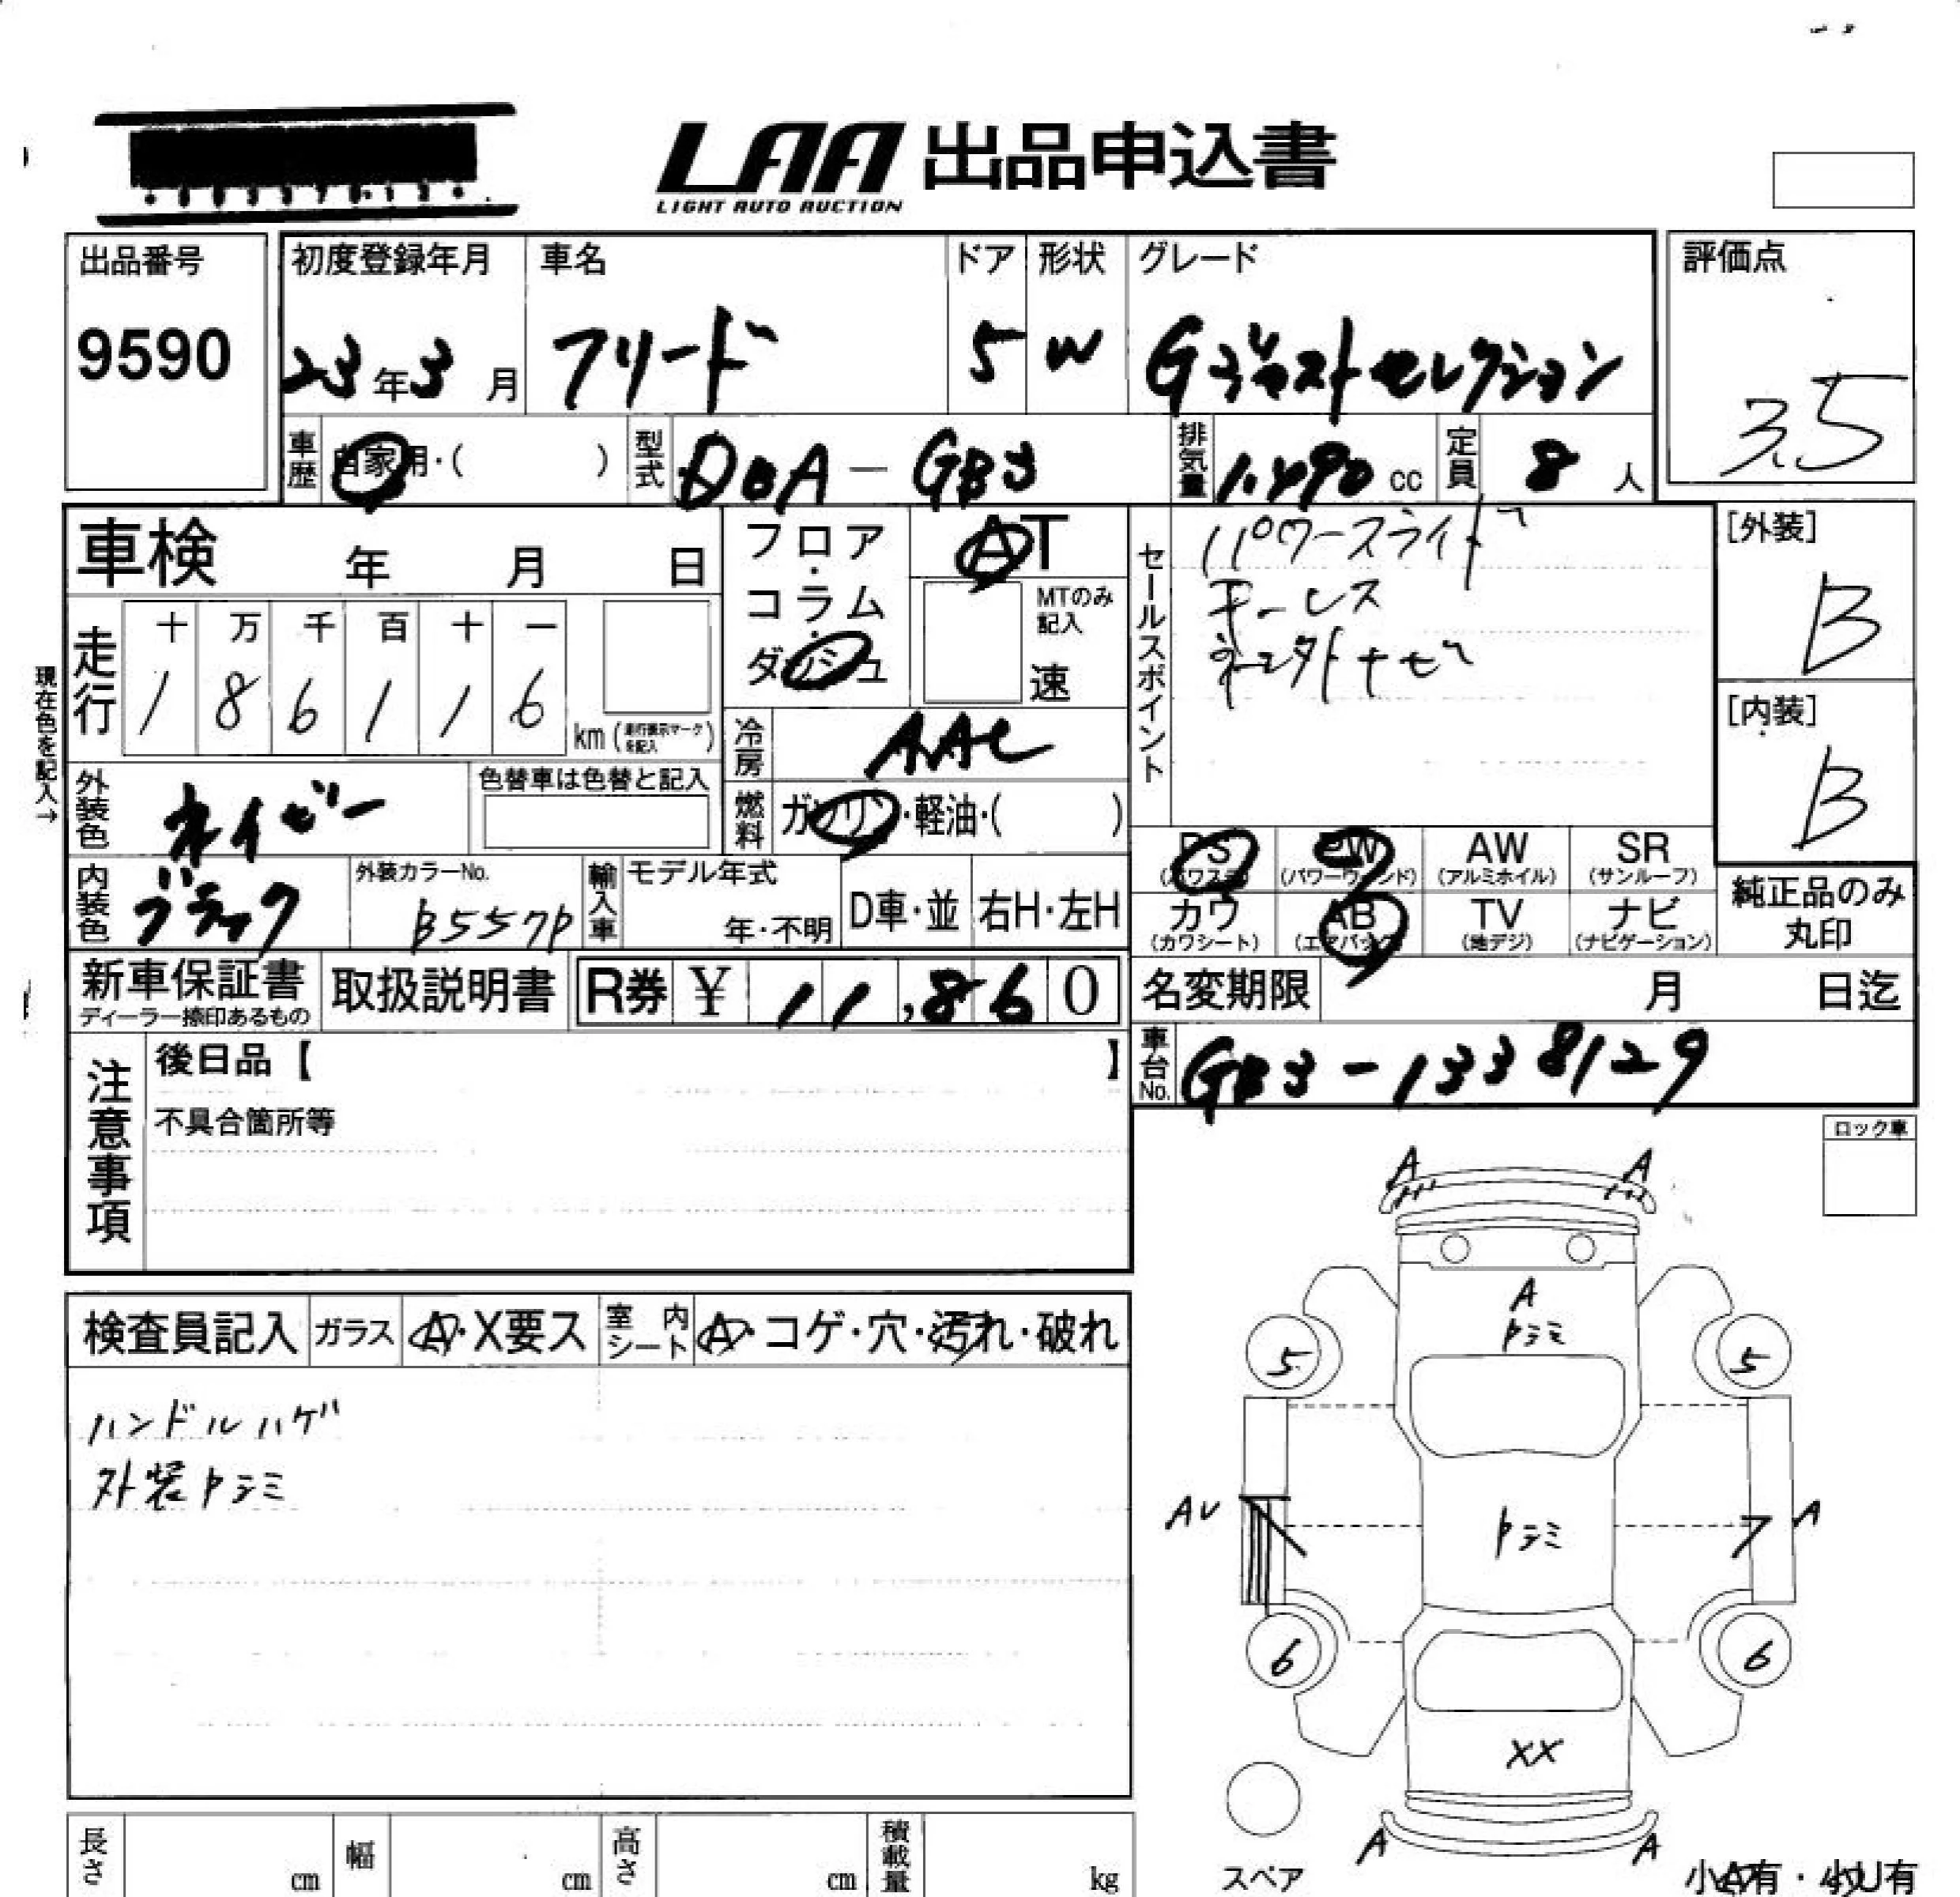 LAA 出品申込書
LIGHT AUTO AUCTION
出品番号
9590
初度登録年月
23年3月
車名
フリード
ドア
5
形状
W
グレード
Gジャストセレクション
評価点
3.5
車歴
自家用・( )
型式
DBA-GB3
排気量
1.490 cc
定員
8 人
車検 年 月 日
現在色を記入→
走行
十 万 千 百 十 一
1 8 6 1 1 6
km (走行表示マークを記入)
フロア・コラム・ダッシュ
AT
MTのみ記入
速
冷房
AAC
燃料
ガソリン・軽油・( )
セールスポイント
パワースライド
キーレス
[外装]
B
[内装]
B
外装色
ネイビー
色替車は色替と記入
内装色
ブラック
外装カラーNo.
B557P
輸入車
モデル年式
年・不明
D車・並
右H・左H
PS
(パワステ)
PW
(パワーウィンド)
AW
(アルミホイル)
SR
(サンルーフ)
カワ
(カワシート)
AB
(エアバック)
TV
(地デジ)
ナビ
(ナビゲーション)
純正品のみ
丸印
新車保証書
ディーラー捺印あるもの
取扱説明書
R券 ¥ 11,860
名変期限 月 日迄
車台No.
GB3-1338129
注意事項
後日品【 】
不具合箇所等
ロック車
検査員記入
ガラス
A・X要ス
室内シート
A・コゲ・穴・汚れ・破れ
ハンドルハゲ
外装クスミ
A A
A
クスミ
5 5
AU クスミ A
6 6
XX
A A
スペア
小A有・小U有
長さ cm
幅 cm
高さ cm
積載量 kg